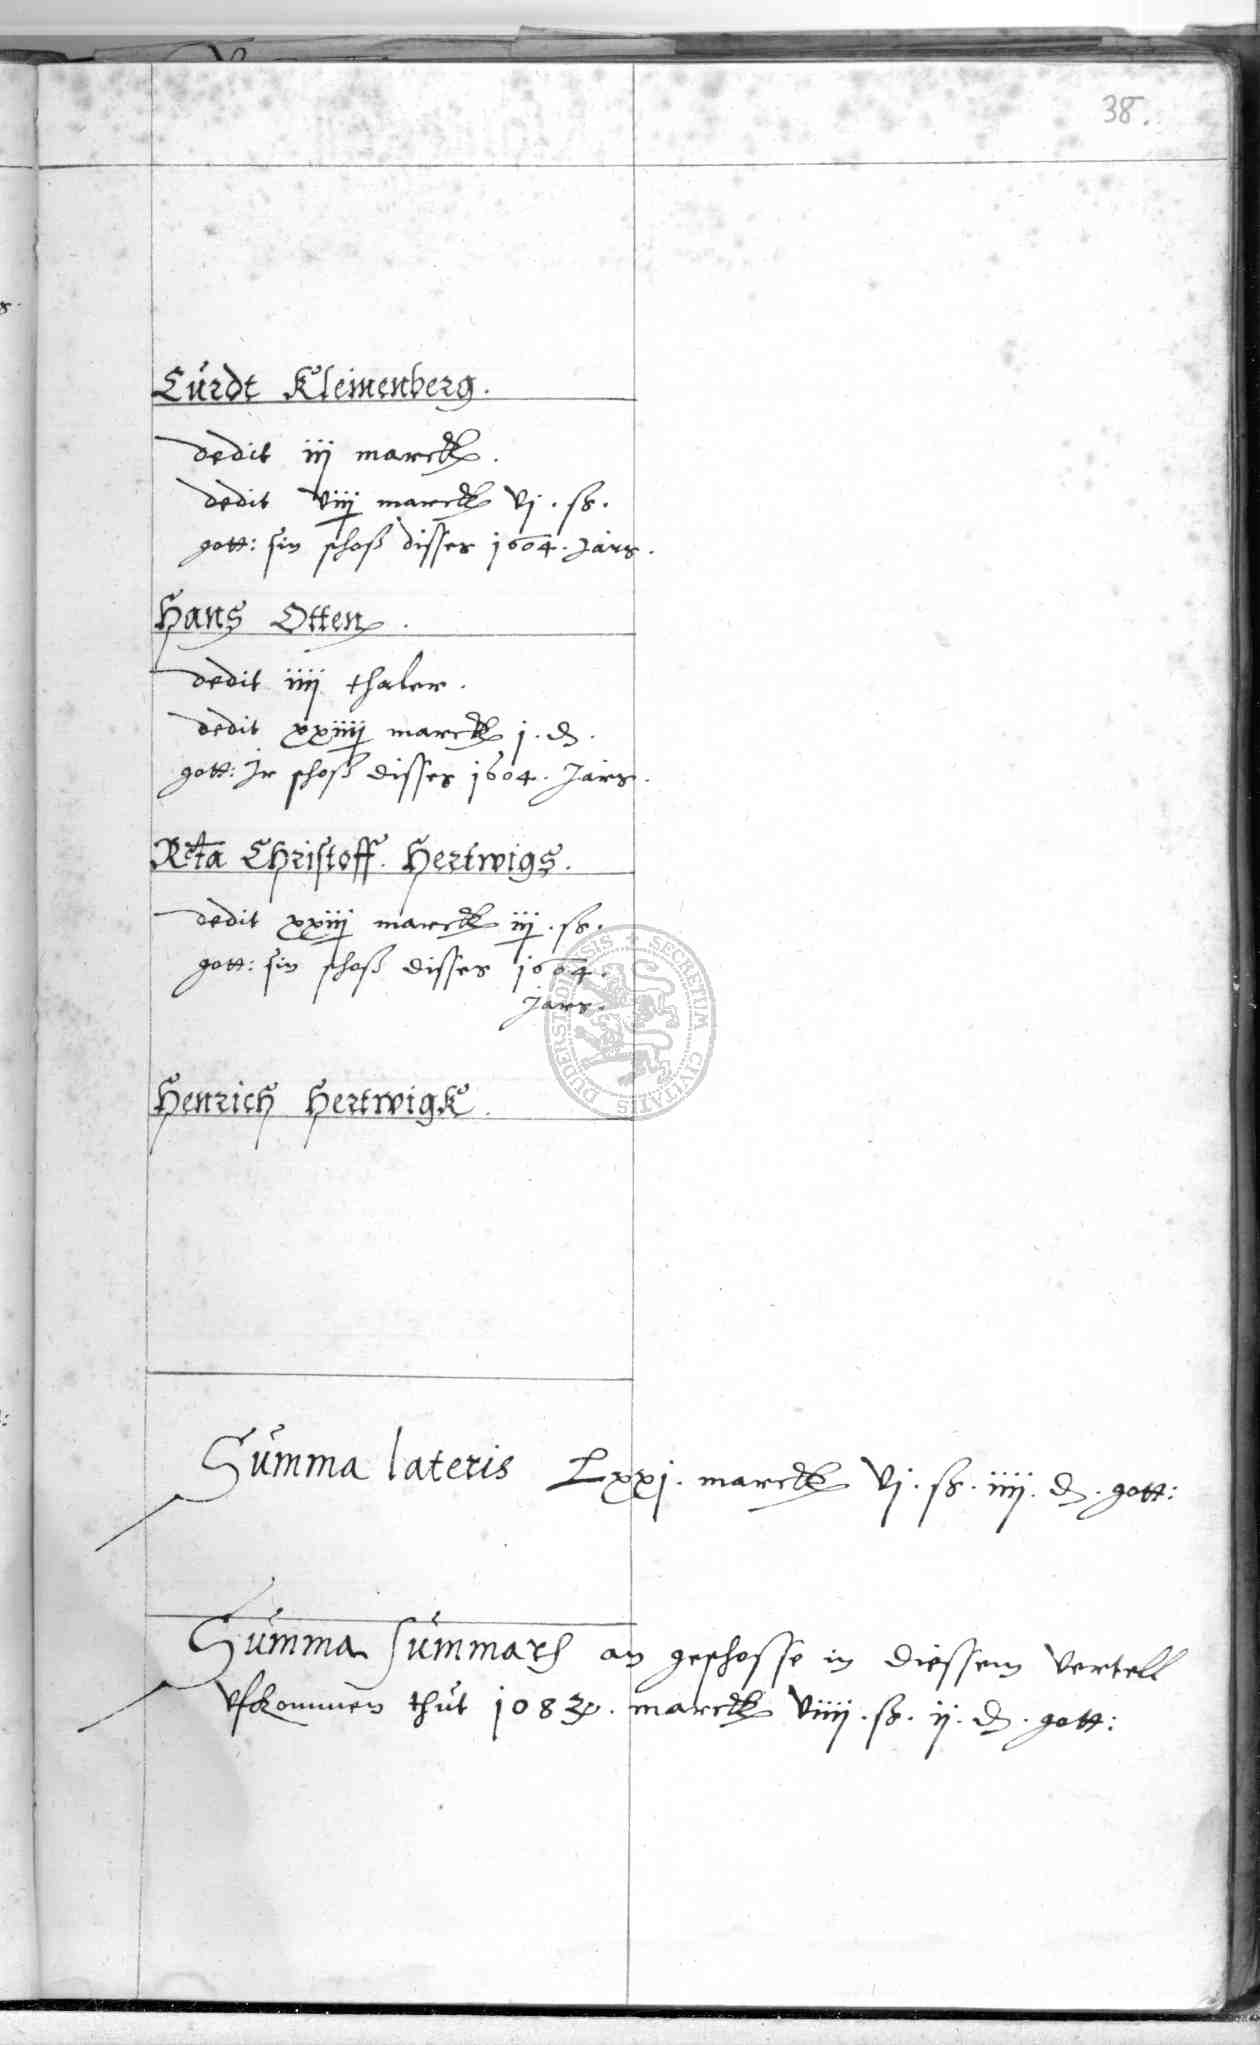 38.
Curdt Kleinenberg.
dedit iij marck.
dedit viij marck vj. ß.
gott: sin schoß disses 1604. Jars.
Hans Otten.
dedit iiij thaler.
dedit xxiiij marck j. ₰.
gott: Jr schoß disses 1604. Jars.
Rcta Christoff. Hertwigs.
dedit xxiij marck iij. ß.
gott: sin schoß disses 1604.
Jars.
Henrich Hertwigk.
Summa lateris Lxxj. marck vj. ß. iiij. ₰. gott:
Summa Summarum an geschosse in diessem vertell
vfkommen thut marck viiij. ß. ij. ₰. gott:
SECRETUM CIVITATIS DUDERSTADENSIS